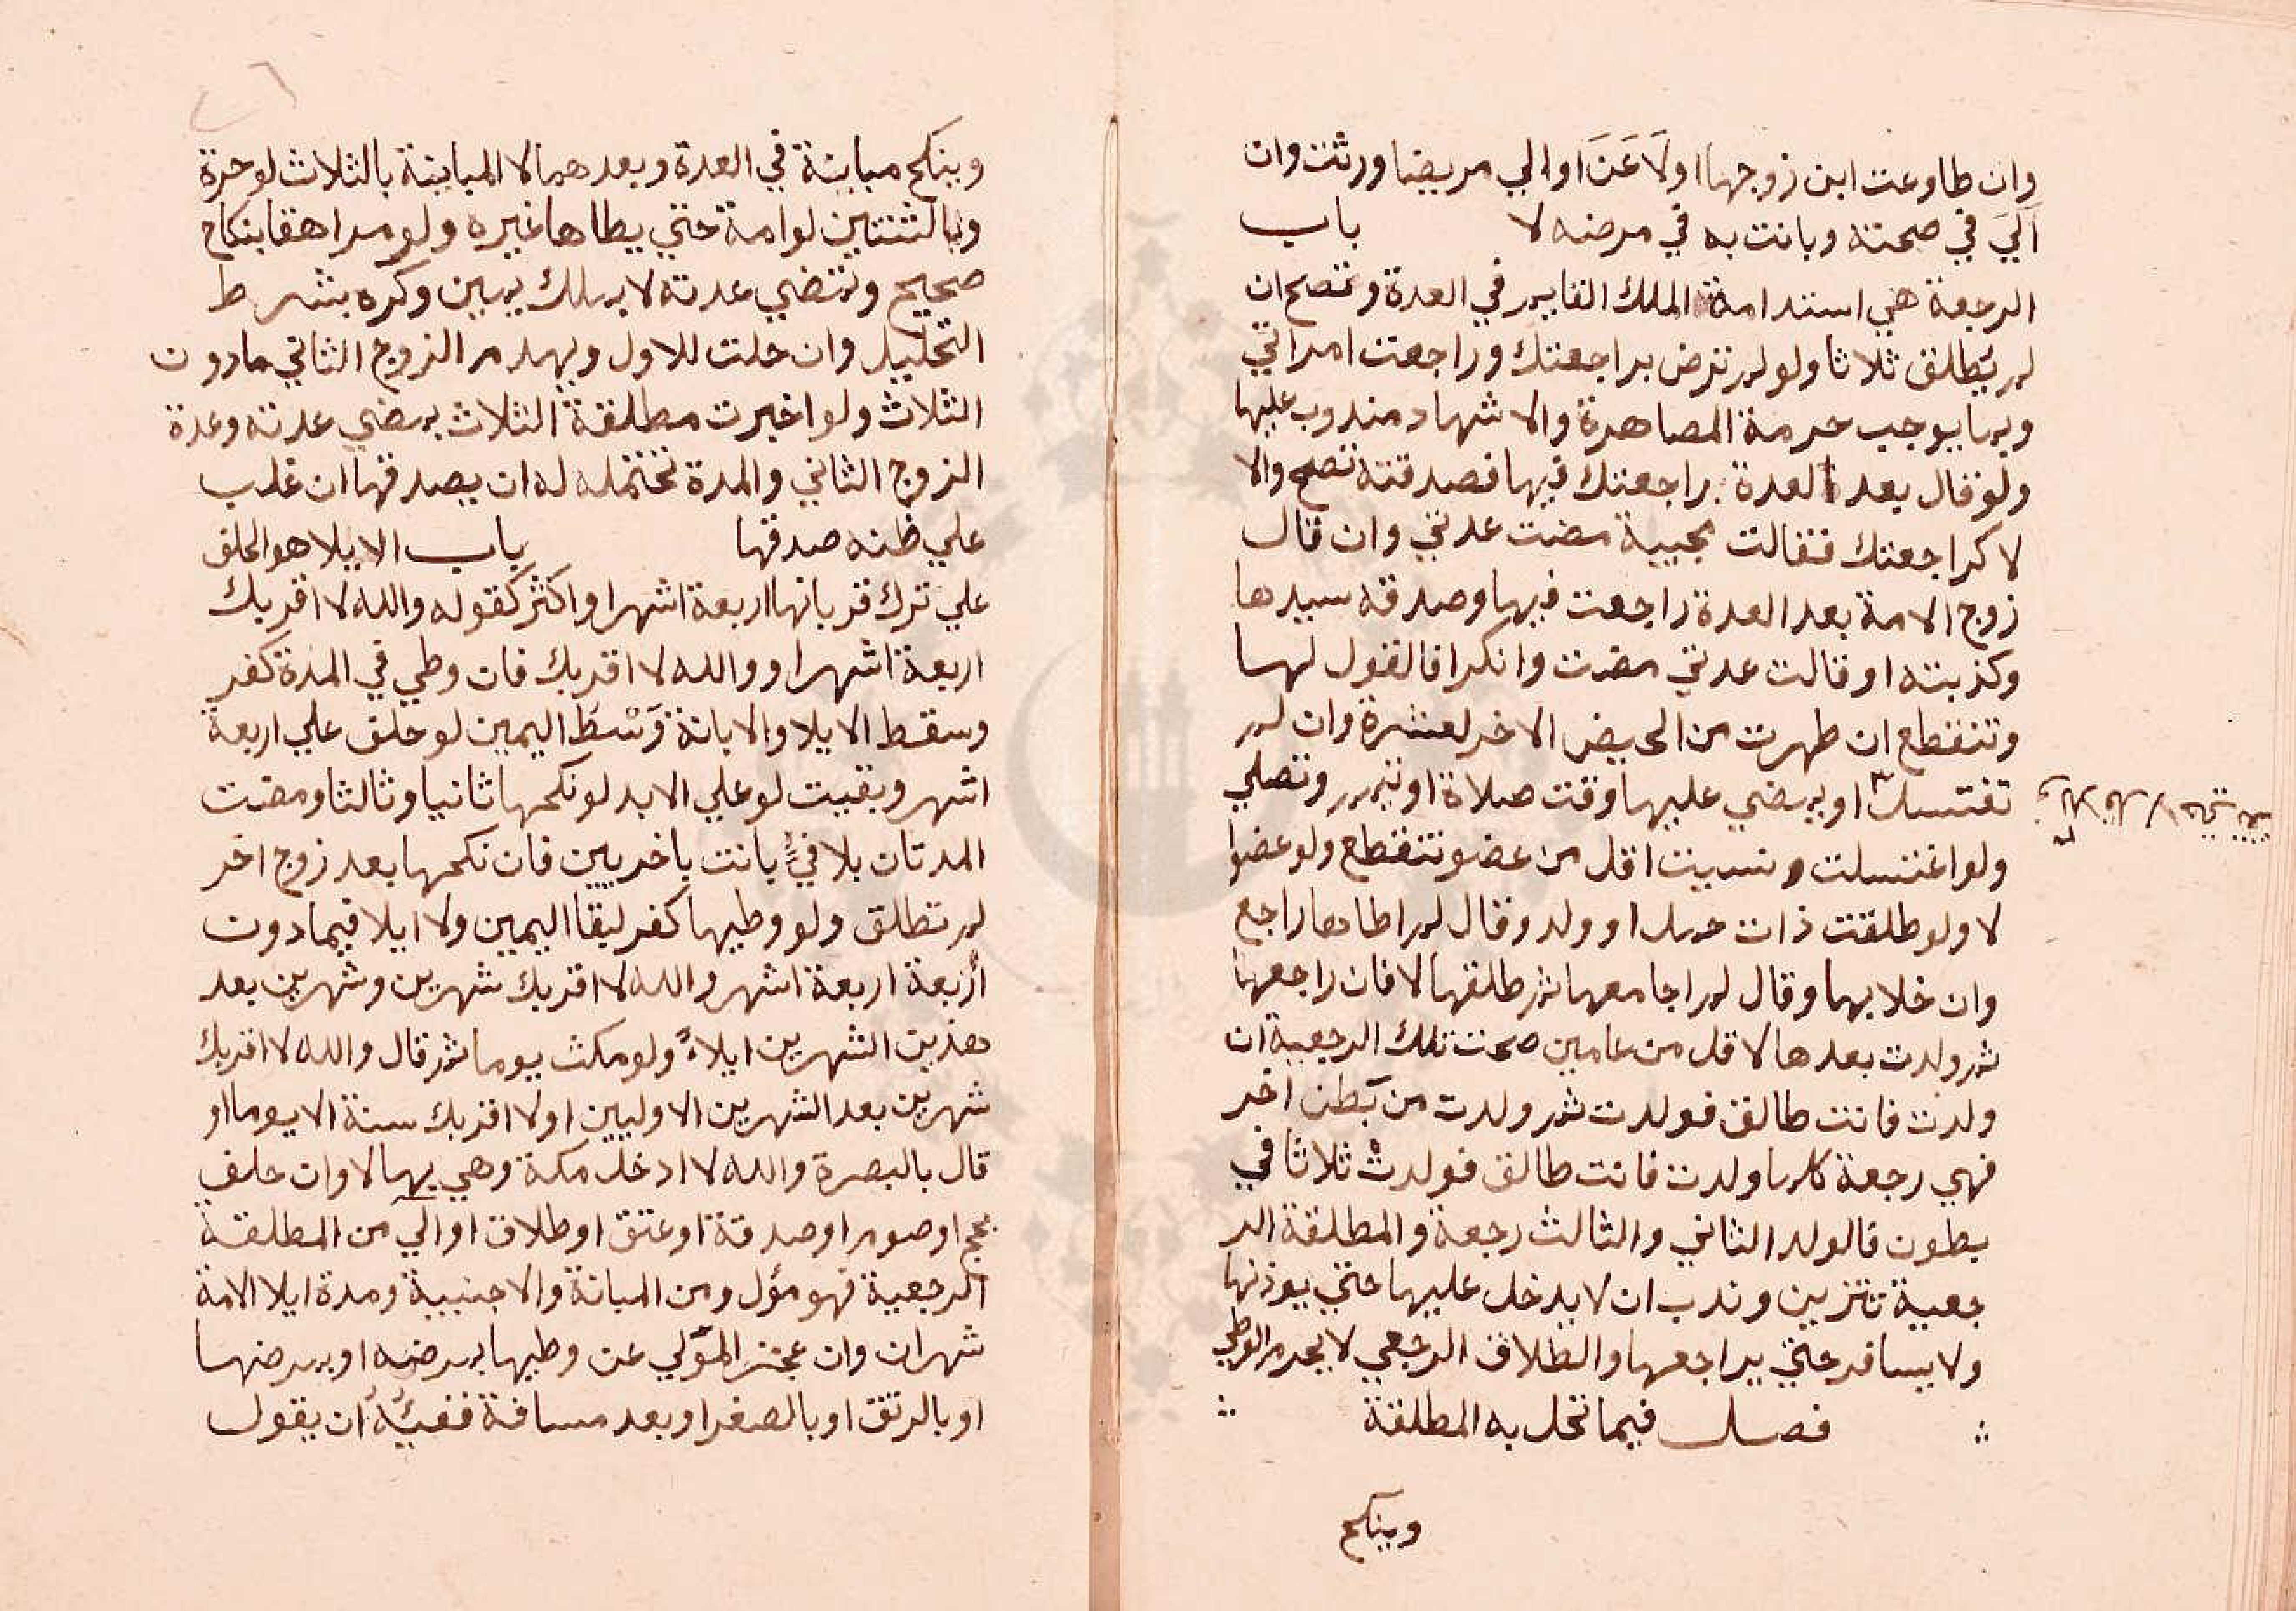 وان طاوعت ابن زوجها اولَاعَنَ او الي مريضا ورثت وان
آلَيَ في صحته وبانت به في مرضه لا باب
الرجعة هي استدامة الملك القايم في العدة وتصح ان
لم يُطلق ثلاثا ولو لم ترض براجعتك وراجعت امراتي
وبما يوجب حرمة المصاهرة والاشهاد مندوب عليها
ولو قال بعد العدة راجعتك فيها فصدقته تصح والا
لا كراجعتك فقالت مجيبة مضت عدتي وان قال
زوج الامة بعد العدة راجعت فيها وصدقه سيدها
وكذبته او قالت عدتي مضت وانكرا فالقول لها
وتنقطع ان طهرت من الحيض الاخر لعشرة وان لم
تغتسل او يمضي عليها وقت صلاة او تيمم وتصلي
ولو اغتسلت ونسيت اقل من عضو تنقطع ولو عضوا
لا ولو طلقت ذات حمل او ولد وقال لم اطاها راجع
وان خلا بها وقال لم اجامعها ثم طلقها لا فان راجعها
ثم ولدت بعدها لاقل من عامين صحت تلك الرجعية ان
ولدت فانت طالق فولدت ثم ولدت من بَطن اخر
فهي رجعة كلما ولدت فانت طالق فولدت ثلاثا في
بطون فالولد الثاني والثالث رجعة والمطلقة الر
جعية تتزين وندب ان لا يدخل عليها حتي يوذنها
ولا يسافر حتي يراجعها والطلاق الرجعي لا يحرم الوطي
فصل فيما تحل به المطلقة
وينكح
وينكح مباينة في العدة وبعدهما لا المباينة بالثلاث لو حرة
وبالثنتين لو امة حتي يطاها غيره ولو مراهقا بنكاح
صحيح وتنتضي عدته لا بملك يمين وكره بشرط
التحليل وان حلت للاول ويهدم الزوج الثاني مادون
الثلاث ولو اخبرت مطلقة الثلاث بمضي عدته وعدة
الزوج الثاني والمدة تحتمله له ان يصدقها ان غلب
علي ظنه صدقها باب الايلا هو الحلف
علي ترك قربانها اربعة اشهر او اكثر كقوله والله لا اقربك
اربعة اشهر او والله لا اقربك فان وطي في المدة كفر
وسقط الايلا والا بانة وَسَقطَ اليمين لو حلف علي اربعة
اشهر وبقيت لو علي الابد لو نكحها ثانيا وثالثا ومضت
المدتان بلا فيءٍ بانت باخريين فان نكحها بعد زوج اخر
لم تطلق ولو وطيها كفر لبقا اليمين ولا ايلا فيما دون
أربعة اربعة اشهر والله لا اقربك شهرين وشهرين بعد
هذين الشهرين ايلاءً ولو مكث يوما ثم قال والله لا اقربك
شهرين بعد الشهرين الاوليين او لا اقربك سنة الا يوما او
قال بالبصرة والله لا ادخل مكة وهي بها لا وان حلف
بحج او صوم او صدقة او عتق او طلاق او آلي من المطلقة
الرجعية فهو مؤل ومن المبانة والاجنبية ومدة ايلا الامة
شهران وان عجز المؤلي عن وطيها بمرضه او بمرضها
او بالرتق او بالصغر او بعد مسافة ففيئُهُ ان يقول